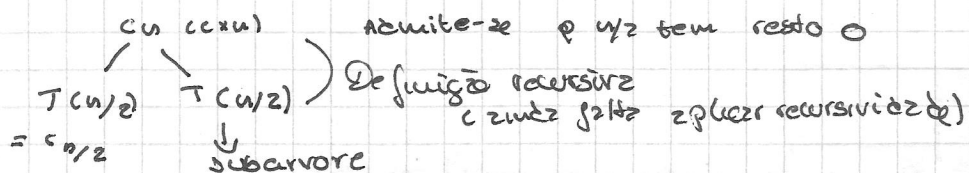 cn (c×n) Admite-se q n/2 tem resto 0
T(n/2) T(n/2) Definição recursiva
= cn/2 (ainda falta aplicar recursividade)
subarvore